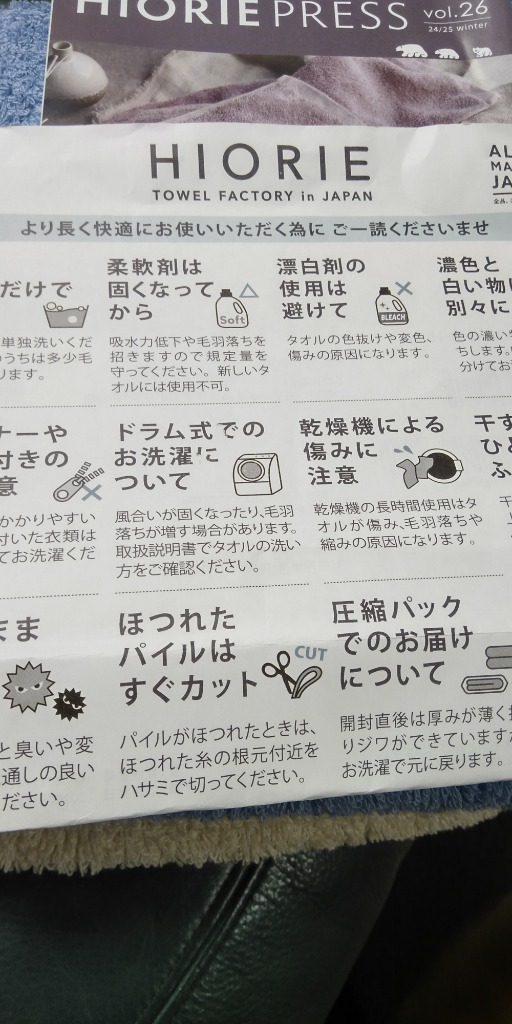 HIORIE PRESS
vol.26
24/25 winter
HIORIE
TOWEL FACTORY in JAPAN
AL
MA
JA
より長く快適にお使いいただく為に ご一読くださいませ
だけで
単独洗いくだ
うちは多少毛
ります。
柔軟剤は
固くなって
から
Soft
吸水力低下や毛羽落ちを
招きますので規定量を
守ってください。新しいタ
オルには使用不可。
漂白剤の
使用は
避けて
BLEACH
タオルの色抜けや変色、
傷みの原因になります。
濃色と
白い物
別々に
色の濃い
ちします。
分けてお
ナーや
付きの
意
かかりやすい
付いた衣類は
てお洗濯くだ
ドラム式での
お洗濯に
ついて
風合いが固くなったり、毛羽
落ちが増す場合があります。
取扱説明書でタオルの洗い
方をご確認ください。
乾燥機による
傷みに
注意
乾燥機の長時間使用はタ
オルが傷み、毛羽落ちや
縮みの原因になります。
干す
ひと
ふ
干
まま
と臭いや変
通しの良い
ださい。
ほつれた
パイルは
すぐカット
CUT
パイルがほつれたときは、
ほつれた糸の根元付近を
ハサミで切ってください。
圧縮パック
でのお届け
について
開封直後は厚みが薄く
りジワができています
お洗濯で元に戻ります。